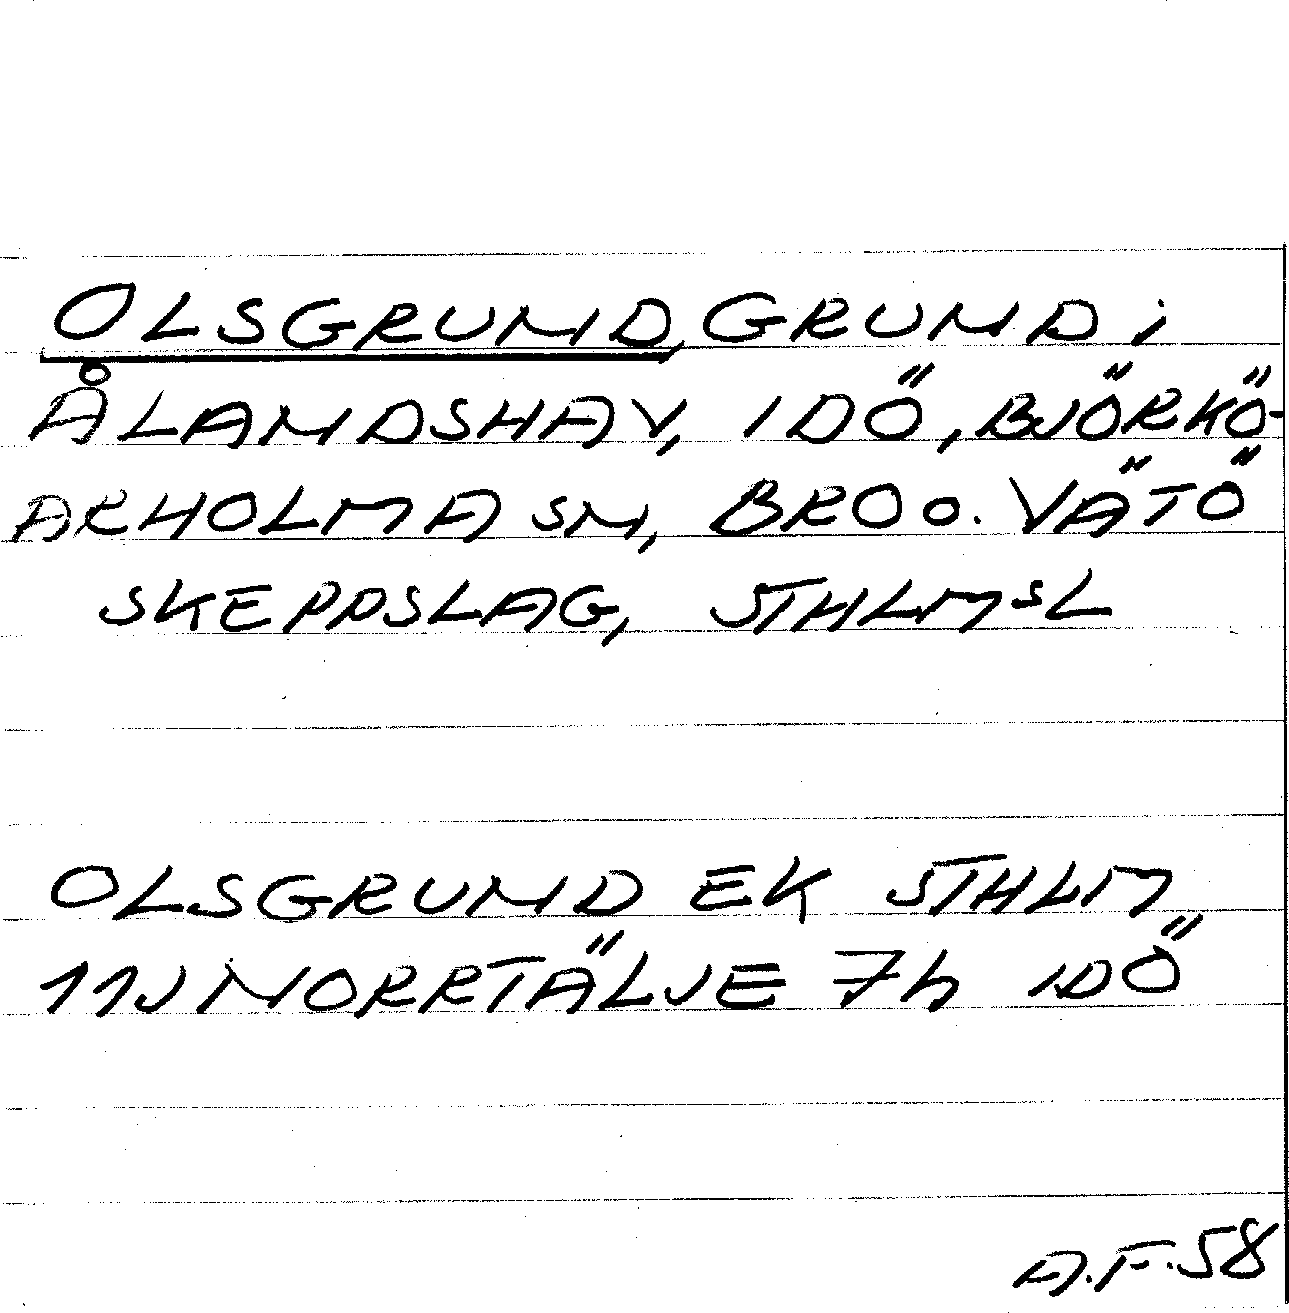 OLSGRUND, GRUND i
ÅLANDSHAV, IDÖ, BJÖRKÖ-
ARHOLMA SN, BRO o. VÄTÖ
SKEPPSLAG, STHLMSL
OLSGRUND EK STHLM
11J NORRTÄLJE 7h IDÖ
A.F.58